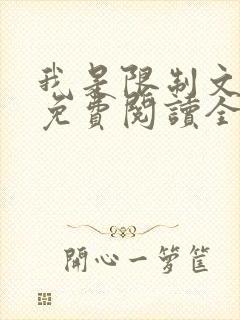 我是限制文
免費閱讀全
開心一籮筐